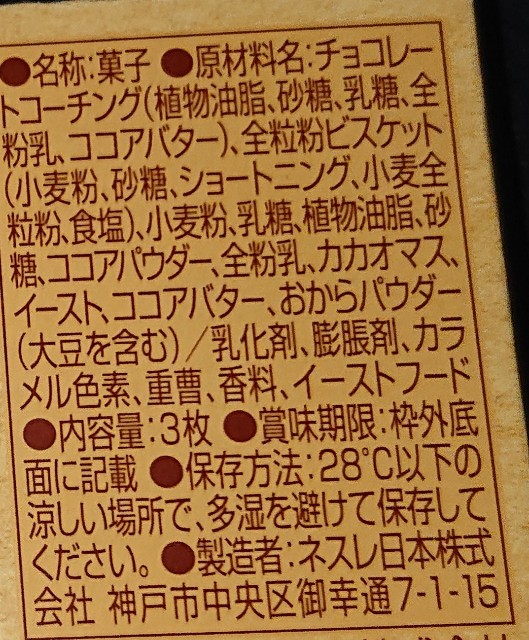 ●名称:菓子 ●原材料名:チョコレー
トコーチング(植物油脂、砂糖、乳糖、全
粉乳、ココアバター)、全粒粉ビスケット
(小麦粉、砂糖、ショートニング、小麦全
粒粉、食塩)、小麦粉、乳糖、植物油脂、砂
糖、ココアパウダー、全粉乳、カカオマス、
イースト、ココアバター、おからパウダー
(大豆を含む)/乳化剤、膨脹剤、カラ
メル色素、重曹、香料、イーストフード
●内容量:3枚 ●賞味期限:枠外底
面に記載 ●保存方法:28℃以下の
涼しい場所で、多湿を避けて保存して
ください。●製造者:ネスレ日本株式
会社 神戸市中央区御幸通7-1-15